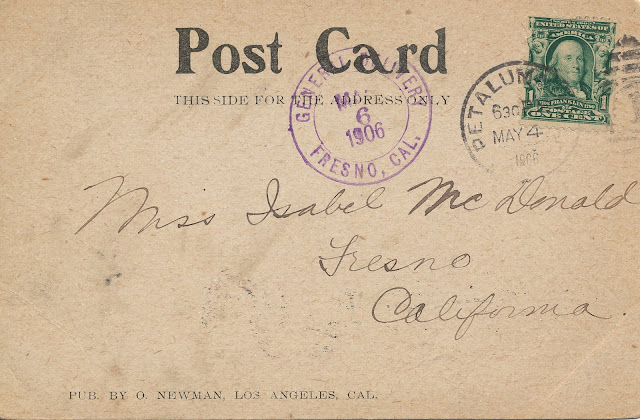 Post Card
THIS SIDE FOR THE ADDRESS ONLY
GENERAL DELIVERY
MAY
6
1906
FRESNO, CAL.
PETALUMA
MAY 4
1906
UNITED STATES OF
AMERICA
1 1
POSTAGE
ONE CENT
Miss Isabel McDonald
Fresno
California.
PUB. BY O. NEWMAN, LOS ANGELES, CAL.